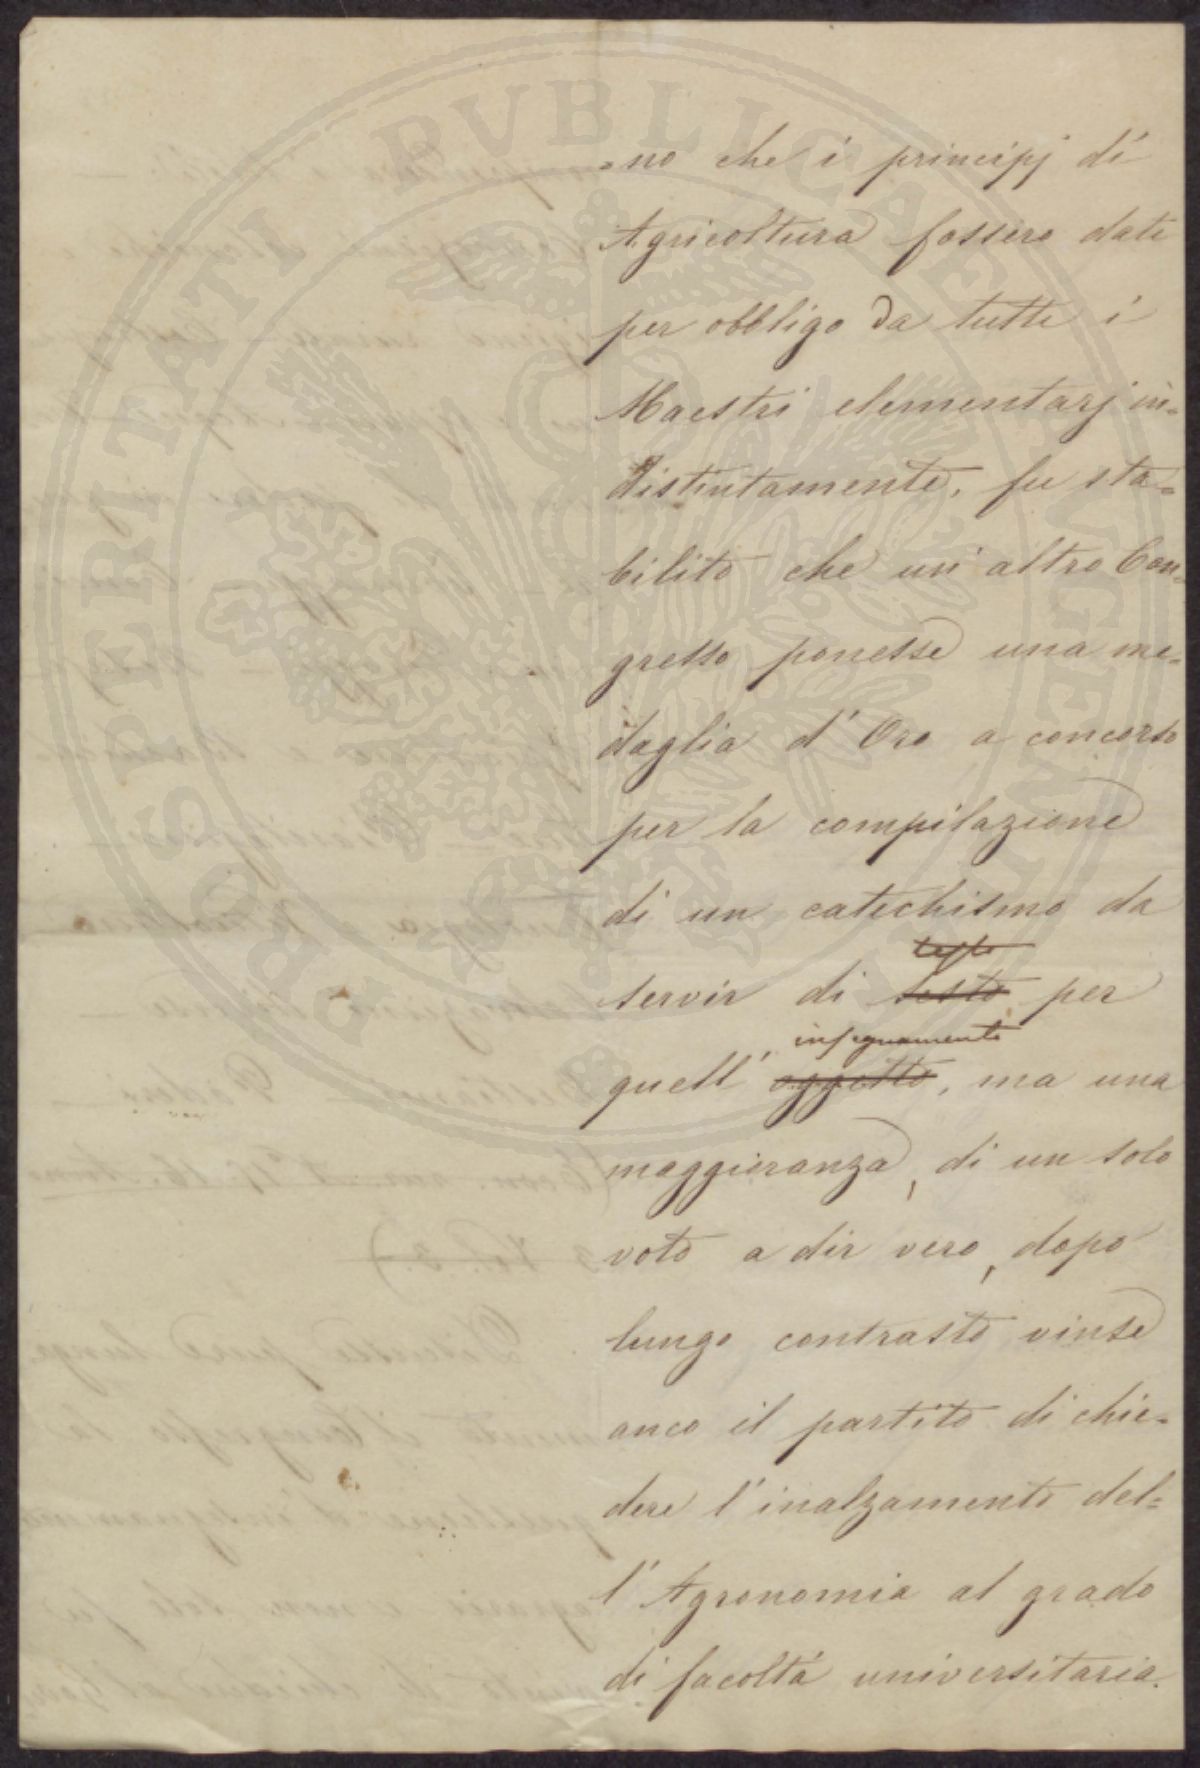 PROSPERITATI PVBLICAE AVGENDAE
=no che i principj di
Agricoltura fossero dati
per obbligo da tutti i
Maestri elementarj in=
distintamente, fu sta=
bilito che un'altro Con=
gresso ponesse una me=
daglia d'Oro a concorso
per la compilazione
di un catechismo da
testo
servir di testo per
insegnamento
quell' oggetto, ma una
maggioranza, di un solo
voto a dir vero, dopo
lungo contrasto vinse
anco il partito di chie=
dere l'inalzamento del=
l'Agronomia al grado
di facoltà universitaria.